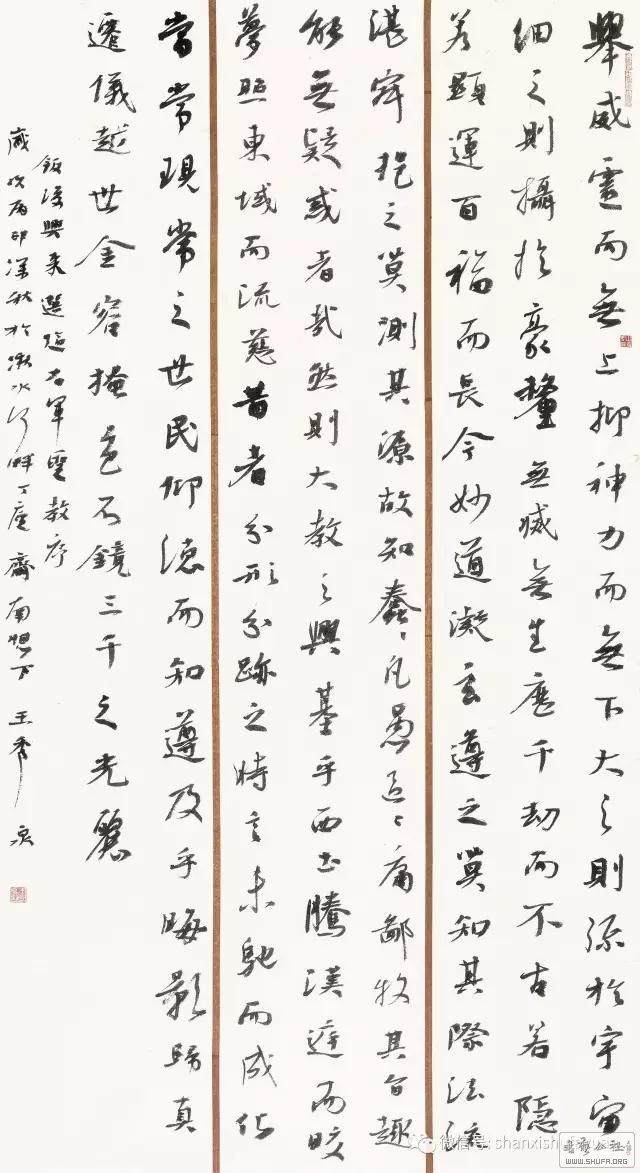 舉威靈而無上抑神力而無下大之則彌於宇宙
細之則攝於豪釐無滅無生歷千劫而不古若隱
若顯運百福而長今妙道凝玄遵之莫知其際法流
湛寂挹之莫測其源故知蠢〻凡愚區〻庸鄙投其旨趣
能無疑惑者哉然則大教之興基乎西土騰漢庭而皎
夢照東域而流慈昔者分形分跡之時言未馳而成化
當常現常之世民仰德而知遵及乎晦影歸真
遷儀越世金容掩色不鏡三千之光麗
飯後興來選臨右軍聖教序
歲次丙深秋於水河畔齋南窗下 王秀泉
微信号: shanxishufayuan
WWW.SHUFA.ORG